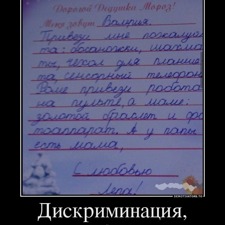 Дорогой Дедушка Мороз!
Меня зовут Валерия.
Привези мне пожалуйс
та: босоножки, шахма
ты, чехол для планше
та, сенсорный телефон.
Роме привези робота
на пульте, а маме:
золотой браслет и фо
тоаппарат. А у папы
есть мама,
С любовью
Лера!
Дискриминация,